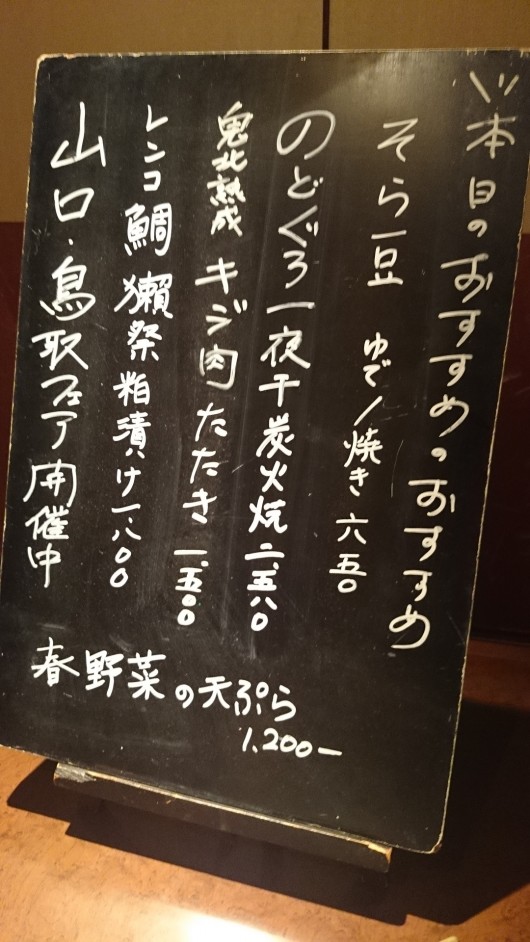 本日のおすすめのおすすめ
そら豆 ゆで/焼き 六五〇
のどぐろ一夜干炭火焼 二、五八〇
鬼北熟成 キジ肉 たたき 一、五〇〇
レンコ鯛 獺祭粕漬け 一、八〇〇
山口・鳥取フェア開催中
春野菜の天ぷら
1,200ー